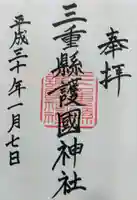 奉拝
三重縣護國神社
平成三十年一月七日